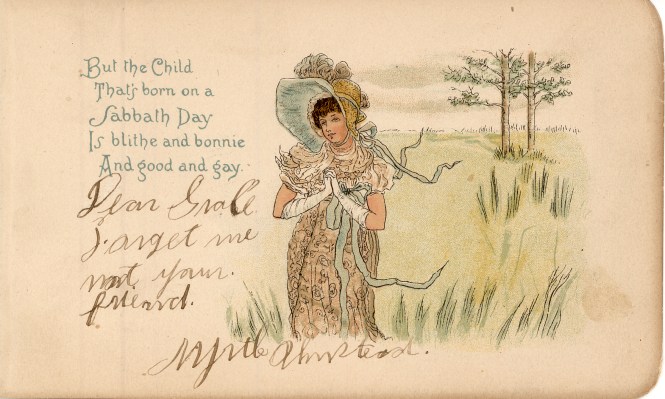 But the Child
That's born on a
Sabbath Day
Is blithe and bonnie
And good and gay.
Dear
Forget me
not your
friend.
Myrtle